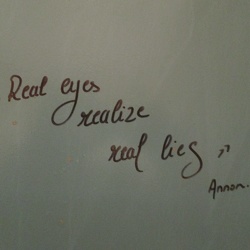 Real eyes
realize
real lies "
Annon.